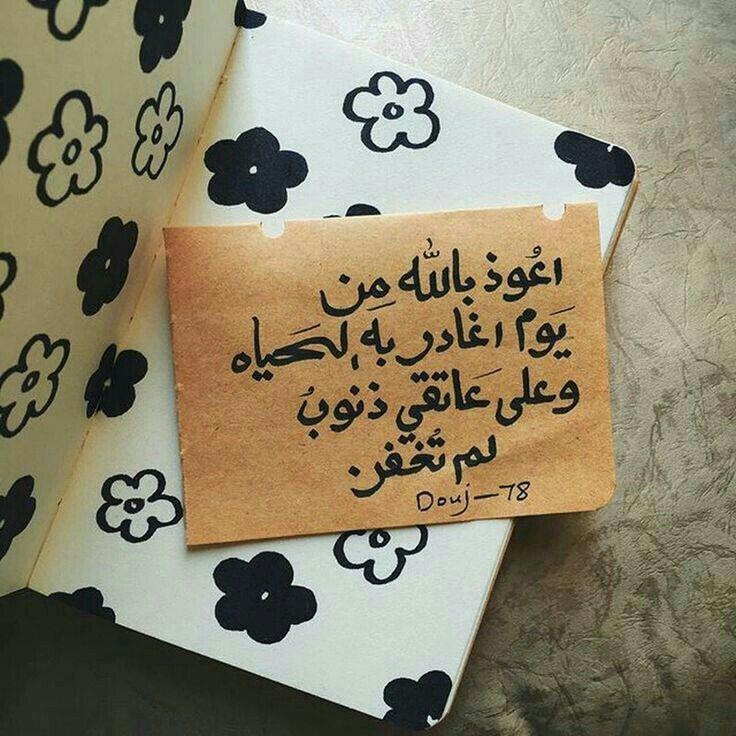 اعُوذ بالله مِن
يَوم اغادر بهِ الحَياه
وعلى عَاتقي ذنوبُ
لم تُغفر.
Douj—78